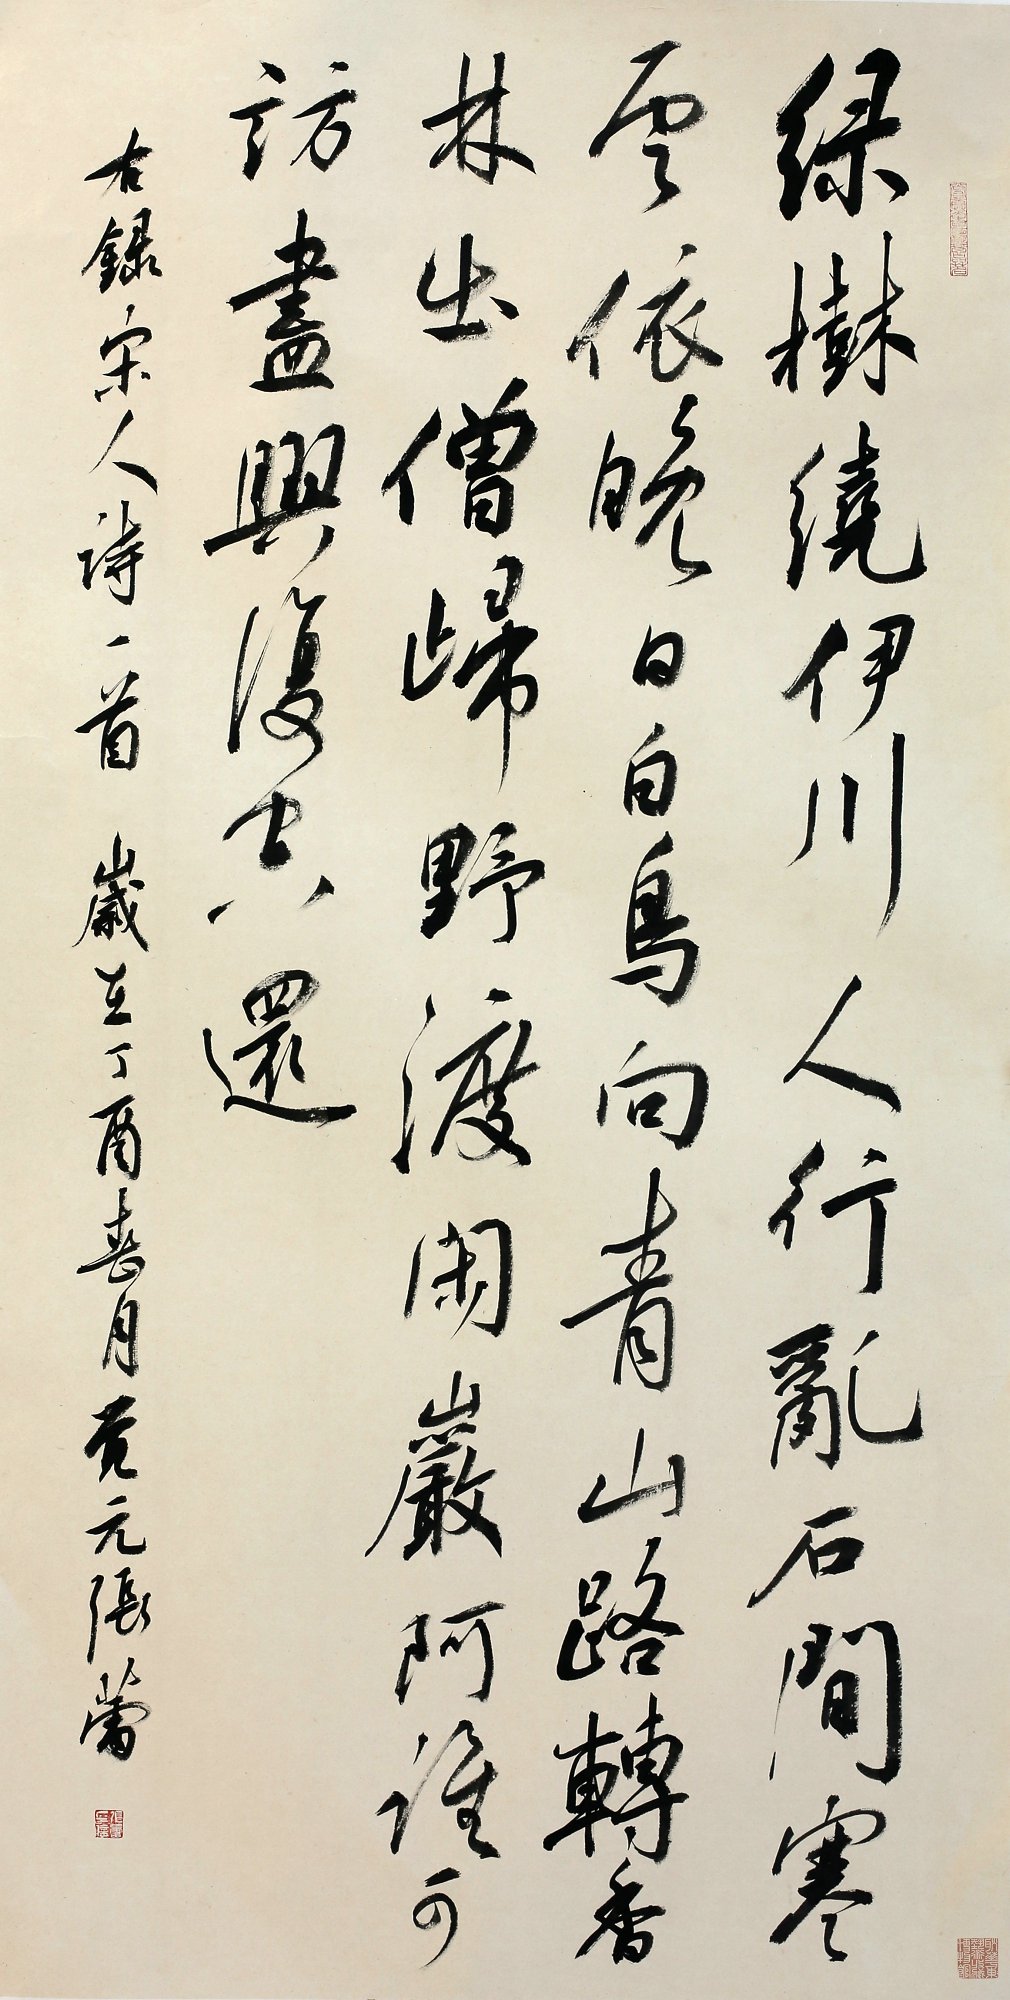 绿樹繞伊川人行亂石間寒
雲依晚日白鳥向青山路轉香
林出僧歸野渡閑巖阿誰可
訪盡興復空還
右錄宋人詩一首 歲在丁酉春月 元張蕾